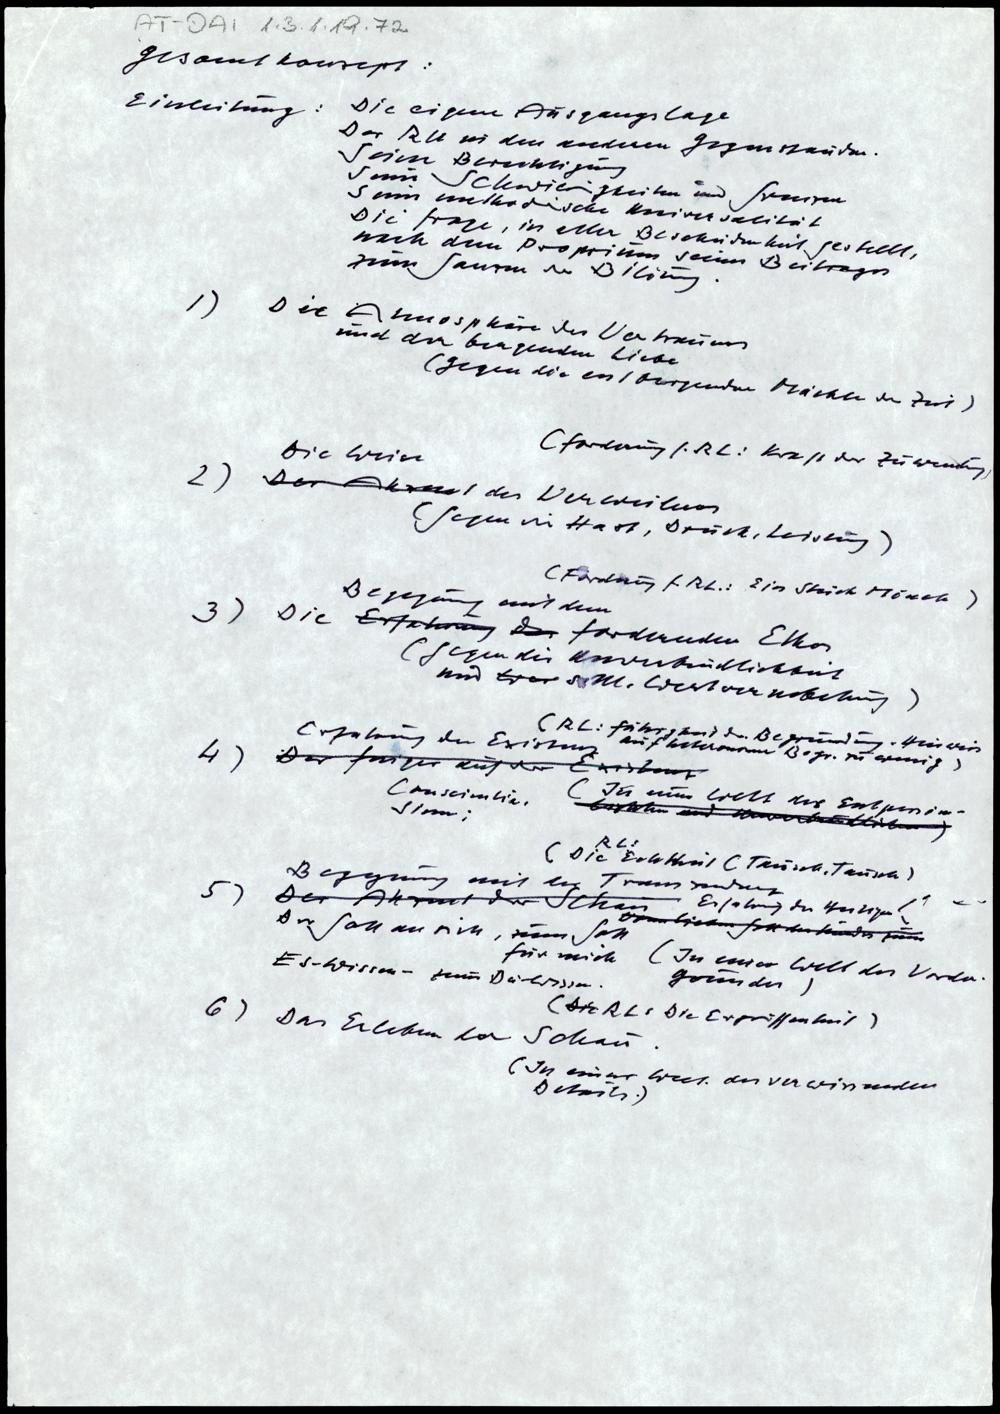 AT-DAI 1.3.1.19.72
Gesamtkonzept:
Einleitung: Die eigene Ausgangslage
Der RU in den anderen Gegenständen.
Seine Berechtigung
Seine Schwierigkeiten und Grenzen
Seine methodische Universalität
Die Frage, in aller Bescheidenheit gestellt,
nach dem Proprium seines Beitrages
zum Ganzen der Bildung.
1) Die Atmosphäre des Vertrauens
und der bergenden Liebe
(Gegen die entbergenden Mächte der Zeit)
(Forderung f. RL: Kraft der Zuwendung)
Die Weise
2) Der Akzent des Verweilens
(Gegen die Hast, Druck, Leistung)
(Forderung f. RL.: Ein Stück Mönch)
Begegnung mit dem
3) Die Erfahrung des fordernden Ethos
(Gegen die Unverbindlichkeit
und Wertvernebelung)
(RL: führt zu der Begründung. Hinweis
auf heteronome Begr. zu wenig)
Erfahrung der Existenz
4) Der Finger auf der Existenz
(In einer Welt der Entpersön-
(RL: Die Echtheit (Tausch, Täusch)
Begegnung mit der Transzendenz
5) Der Akzent der Schau Erfahrung des Heiligen!?
Der Gott an sich, zum Gott
für mich (In einer Welt des Vorder-
gründes)
Es-Wissen- zum Du-Wissen.
(Die RL: Die Ergriffenheit)
6) Das Erleben der Schau.
(In einer Welt der verwirrenden
Details.)